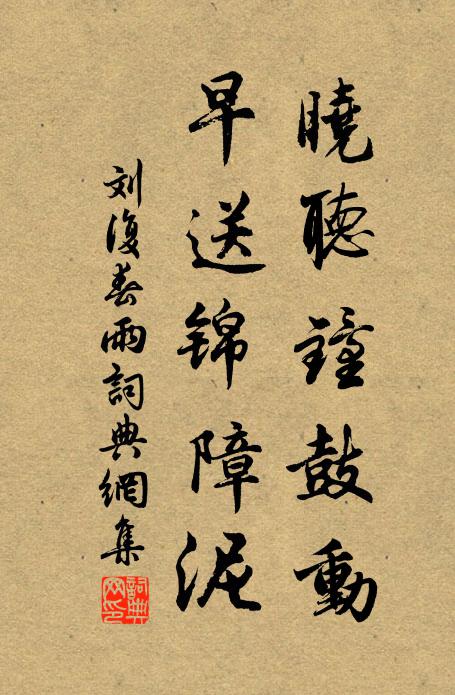 曉聽鐘鼓動
早送锦障泥
刘復春雨詞典網集
詞典網印